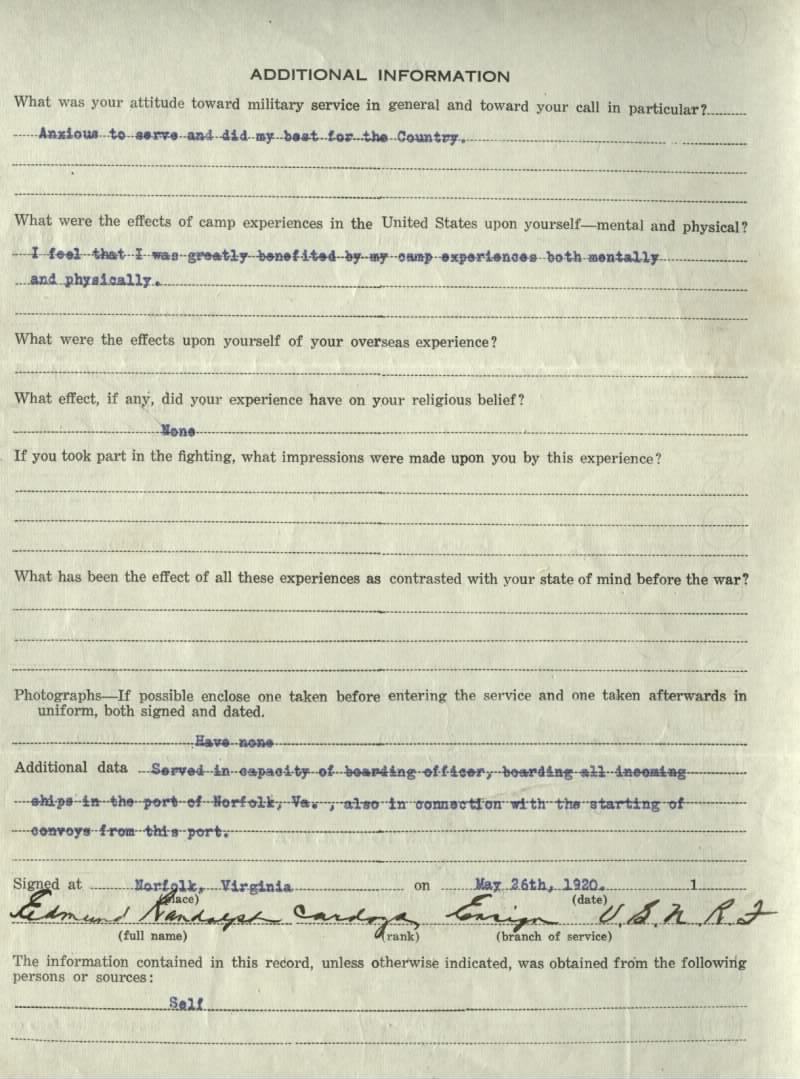 ADDITIONAL INFORMATION
What was your attitude toward military service in general and toward your call in particular?
Anxious to serve and did my best for the Country.
What were the effects of camp experiences in the United States upon yourself—mental and physical?
I feel that I was greatly benefited by my camp experiences both mentally
and physically.
What were the effects upon yourself of your overseas experience?
What effect, if any, did your experience have on your religious belief?
None
If you took part in the fighting, what impressions were made upon you by this experience?
What has been the effect of all these experiences as contrasted with your state of mind before the war?
Photographs—If possible enclose one taken before entering the service and one taken afterwards in
uniform, both signed and dated.
Have none
Additional data Served in capacity of boarding officer, boarding all incoming
ships in the port of Norfolk, Va. , also in connection with the starting of
convoys from this port.
Signed at Norfolk, Virginia on May 26th, 1920. 1
(place) (date)
Edmund Randolph Cardoza, Ensign U. S. N. R. F
(full name) (rank) (branch of service)
The information contained in this record, unless otherwise indicated, was obtained from the following
persons or sources:
Self